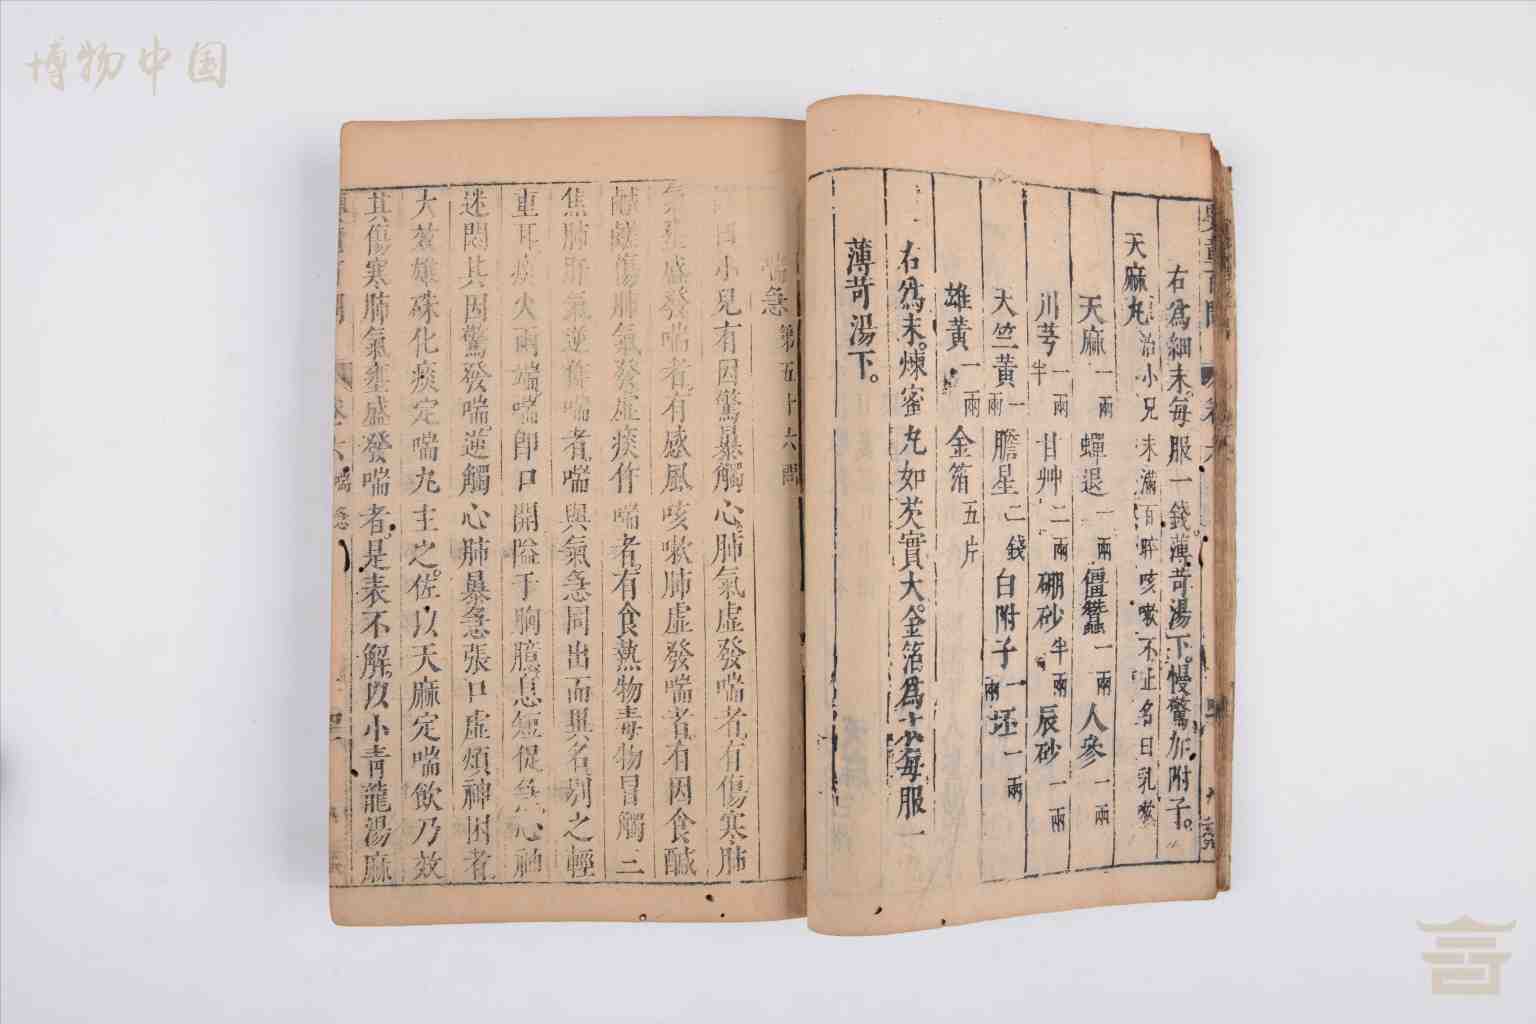 博物中国
卷六
右為細末。每服一錢。薄苛湯下。慢驚加附子。
天麻丸 治小兒未滿百晬咳嗽不止名曰乳嗽
天麻一兩 蟬退一兩 僵蠶一兩 人參一兩
川芎一兩半 甘艸二兩 硼砂半兩 辰砂一兩
天竺黃一兩 膽星二錢 白附子一兩 坯一兩
雄黃一兩 金箔五片
右為末。煉蜜丸如芡實大。金箔為衣。每服一
薄苛湯下。
喘急 第五十六問
曰小兒有因驚暴觸心。肺氣虛發喘者。有傷寒肺
氣壅盛發喘者。有感風咳嗽肺虛發喘者。有因食鹹
鹹鹺傷肺氣發虛痰作喘者。有食熱物毒物冒觸三
焦肺肝氣逆作喘者。喘與氣急同出而異名。別之輕
重耳。痰火雨喘喘即口開隘于胸臆。息短促急。心神
迷悶。其因驚發喘。逆觸心肺。暴急張口。虛煩神困者。
大效雄硃化痰定喘丸主之。佐以天麻定喘飲乃效
其傷寒肺氣壅盛發喘者。是表不解。以小青龍湯麻
卷六 喘急